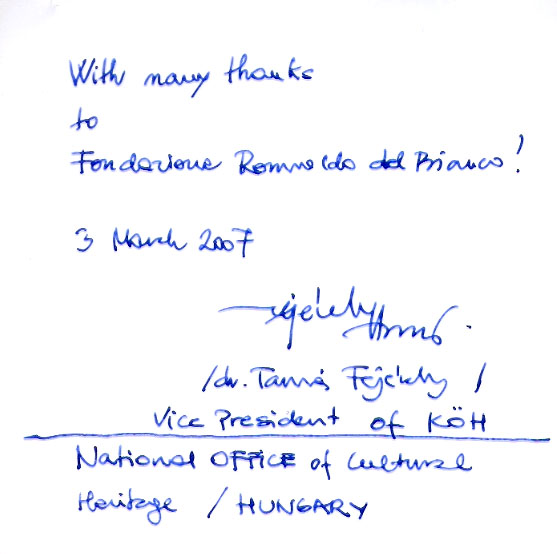 With many thanks
to
Fondazione Romualdo del Bianco!
3 March 2007
Fejérdy Tamás.
/dr. Tamás Fejérdy /
Vice President of KÖH
National OFFICE of Cultural
Heritage / HUNGARY